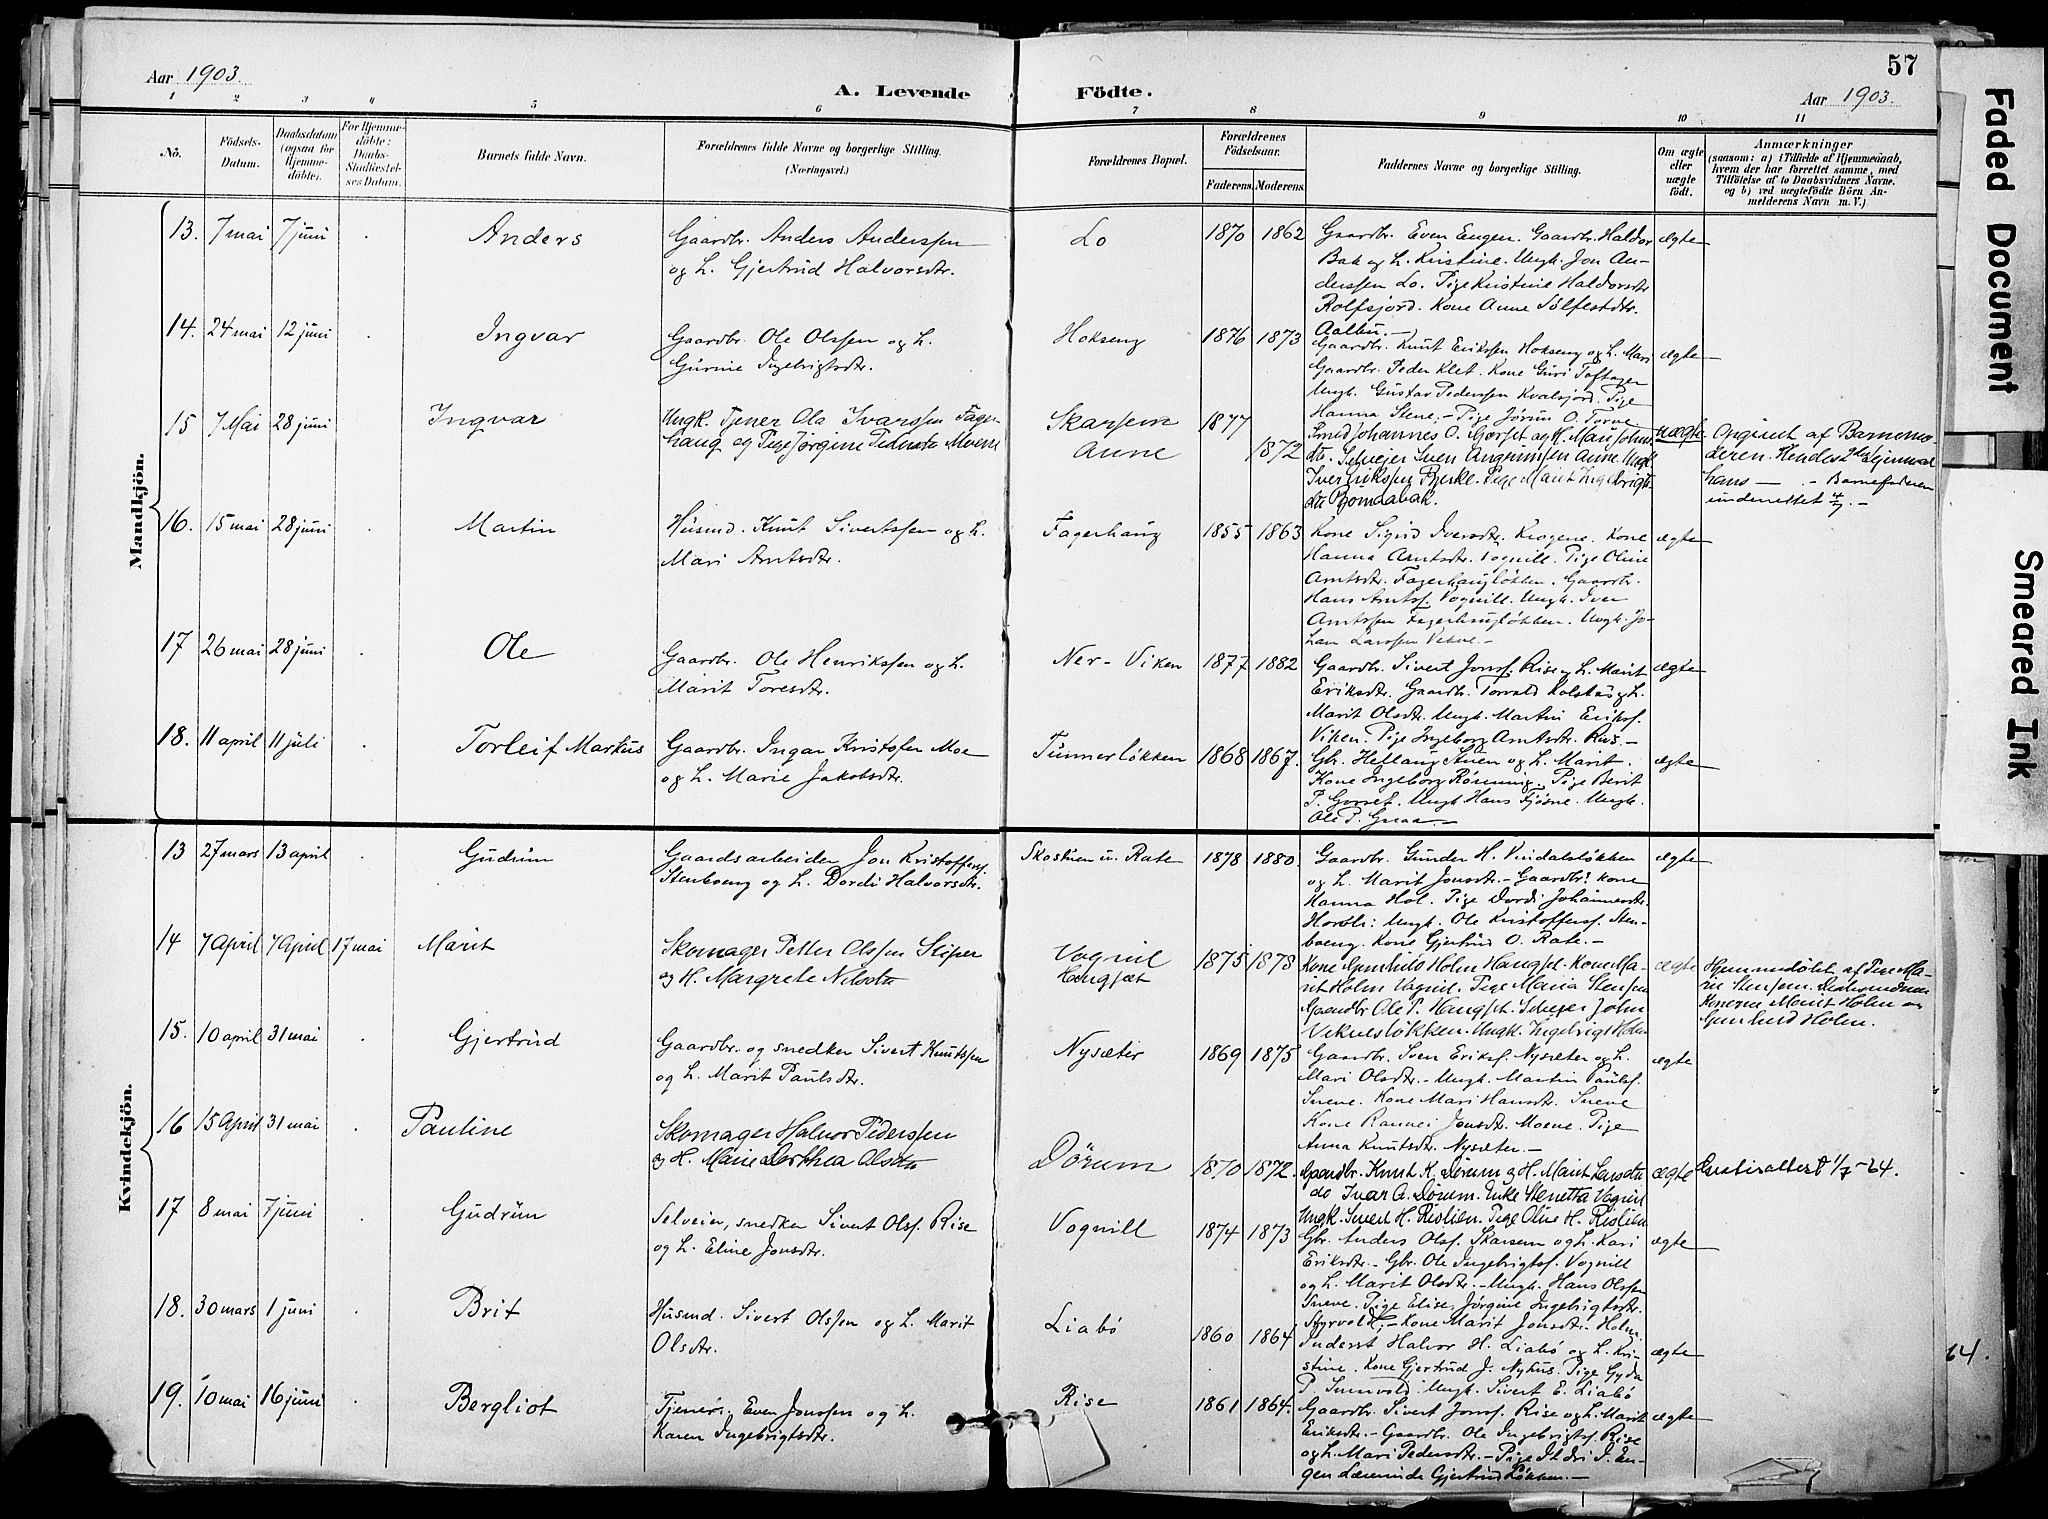 57
Aar 1903.
A. Levende Födte.
Aar 1903.
1 2 3 4 5 6 7 8 9 10 11
No.
Födsels-
Datum.
Daabsdatum
(ogsaa for
Hjemme-
döbte).
For Hjemme-
döbte:
Daabs-
Stadfæstel-
ses Datum.
Barnets fulde Navn.
Forældrenes fulde Navne og borgerlige Stilling.
(Næringsvei.)
Forældrenes Bopæl.
Forældrenes
Födselsaar.
Faderens. Moderens.
Faddernes Navne og borgerlige Stilling.
Om ægte
eller
uægte
født.
Anmærkninger
(saasom: a) i Tilfælde af Hjemmedaab,
hvem der har forrettet samme, med
Tilföielse af to Daabsvidners Navne,
og b) ved uægtefödte Börn An-
melderens Navn m. V.)
Mandkjön.
13. 7 mai 7 juni Anders Gaardbr. Anders Anderssen
og h. Gjertrud Halvorsdtr.
Lo 1870 1862 Gaardbr. Even Engen. Gaardbr. Haldor ægte
Bak og h. Kristine. Ungk. Jon An-
derssen Lo. Pige Kristine Haldorsdtr
Rolfsjord. Kone Anne Sölfestdtr.
Aalbu.
14. 24 mai 12 juni Ingvar Gaardbr. Ole Olssen og h.
Gurine Ingebrigtsdtr.
Hokseng 1876 1873 Gaardbr. Knut Erikssen Hokseng og h. Mari ægte
Gaardbr. Peder Klet. Kone Guri Toftagen
Ungk. Gustav Pederssen Kvalsjord. Pige
Hanna Stene. Pige Jørun O. Torve
15 7 Mai 28 juni Ingvar Ungk. Tjener Ola Ivarssen Fager-
haug og Pige Jørgine Pedersdtr Moene
Skarsem
Anne
1877
1872
Smed Johannes O. Gorset og H. Mari Johns- uægte
dtr. Selveier Sven Anne Ungk.
Iver Erikssen Pige Marit Ingebrigts-
dtr
Opgivet af Barnemo-
deren. Hendes
hans — Barnefaderen
underrettet 4/7. —
16. 15 mai 28 juni Martin Husmd. Knut Sivertssen og h.
Mari Arntsdtr.
Fagerhaug 1855 1863 Kone Sigrid Iversdtr. Krogene. Kone ægte
Hanna Arntsdtr. Vognill. Pige Oline
Arntsdtr. Fagerhaugløkken. Gaardbr.
Hans Arntsf. Vognill. Ungk. Iver
Arntssen Fagerhaugløkken. Ungk. Jo-
han Larssen Vekve.
17 26 mai 28 juni Ole Gaardbr. Ole Henrikssen og h.
Marit Toresdtr.
Ner-Viken 1877 1882 Gaardbr. Sivert Jonsf. Rise og h. Marit ægte
Eriksdtr. Gaardbr. Torvald Kolskas og h.
Marit Olsdtr. Ungk. Martin Eriksf.
Viken. Pige Ingeborg Arntsdtr. Rus.
18. 11 april 11 juli Torleif Martus Gaardbr. Ingar Kristofer Moe
og h. Marie Jakobsdtr.
Tunnerløkken 1868 1867. Gbr. Hellaug Stuen og h. Marit. ægte
Kone Ingeborg Rønning. Pige Berit
P. Gorset. Ungk. Hans Fjøsne. Ungk.
Ole P. Gnaa.
Kvindekjön.
13 27 mars 13 april Gudrun Gaardsarbeider Jon Kristoffersf.
Stenboeng og h. Dordi Halvorsdtr.
Skostuen u. Rate 1878 1880 Gaardbr. Gunder H. Vindalsløkken ægte
og h. Marit Jonsdtr. Gaardbr. kone
Hanna Hol. Pige Dordi Johannesdtr.
Horbli. Ungk. Ole Kristoffersf. Sten-
boeng. Kone Gjertrud O. Rate.
14 7 April 7 April 17 mai Marit Skomager Petter Olssen Stiper
og H. Margrete Nilsdtr
Vognil
Haugsæt
1875 1878 Kone Gunhild Holm Haugset. Kone Ma- ægte
rit Holm Vognil. Pige Maria Stensen
Gaardbr Ole P. Haugset. Selveier John
Vekveløkken. Ungk. Ingebrigt Holm
Hjemmedöbt af Pige Ma-
rie Stensen. Daabsvidner
Konerne Marit Holm og
Gunhild Holm.
15. 10 april 31 mai Gjertrud Gaardbr. og snedker Sivert Knutssen
og h. Marit Paulsdtr.
Nysæter 1869 1875 Gaardbr. Sven Eriksf. Nysæter og h. ægte
Mari Olsdtr. Ungk. Martin Paulsf.
Sneve. Kone Mari Hansdtr. Sneve
Kone Rannei Jonsdtr. Moene. Pige
Anna Knutsdtr. Nysæter.
16 15 April 31 mai Pauline Skomager Halvor Pederssen
og H. Marie Dorthea Olsdtr
Dörum 1870 1872. Gaardbr. Knut K. Dörum og H. Marit Larsdtr ægte
do Ivar A. Dörum. Enke Stenetta Vognil
Ungk. Sivert H. Ristien. Pige Oline H. Ristien
1/7-24.
17 8 mai 7 juni Gudrun Selveier, snedker Sivert Olsf. Rise
og h. Eline Jonsdtr.
Vognill 1874 1873 Gbr. Anders Olsf. Skarsem og h. Kari ægte
Eriksdtr. Gbr. Ole Ingebrigtsf. Vognill
og h. Marit Olsdtr. Ungk. Hans Olssen
Sneve. Pige Elise Jörgine Ingebrigtsdtr.
Styrvold. Kone Marit Jonsdtr. Holm
18. 30 mars 1 juni Brit Husmd. Sivert Olssen og h. Marit
Olsdtr.
Liabö 1860 1864 Inderst Halvor H. Liabö og h. Kri- ægte
stine. Kone Gjertrud J. Nyhus. Pige Gyda
P. Sunvold. Ungk. Sivert E. Liabö
19. 10 mai 16 juni Bergliot Tjener. Even Jonssen og h.
Karen Ingebrigtsdtr.
Rise 1861 1864. Gaardbr. Sivert Jonsf. Rise og h. Marit ægte
Eriksdtr. Gaardbr. Ole Ingebrigtsf. Rise
og h. Mari Pedersdtr. Pige Ildri I. En-
gen Lærerinde Gjertrud Løkken.
64.
Faded Document
Smeared Ink